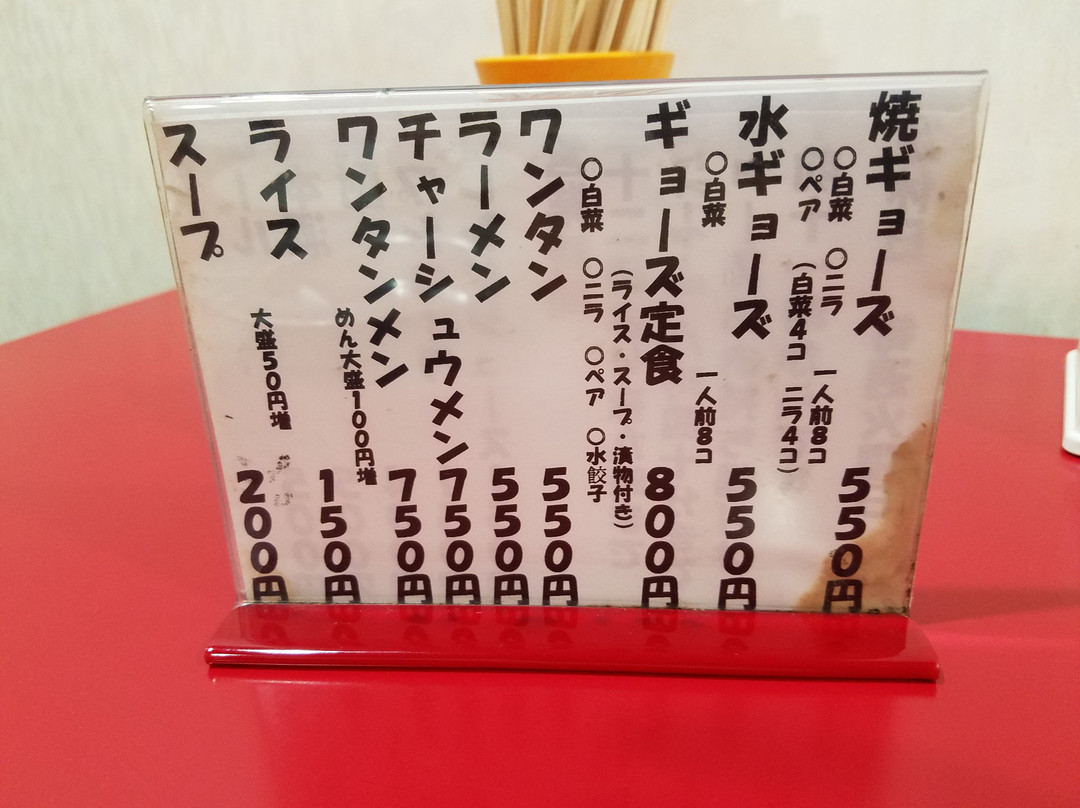 焼ギョーズ 550円
○白菜 ○ニラ 一人前8コ
○ペア (白菜4コ ニラ4コ)
水ギョーズ 550円
○白菜 一人前8コ
ギョーズ定食 800円
(ライス・スープ・漬物付き)
○白菜 ○ニラ ○ペア ○水餃子
ワンタン 550円
ラーメン 550円
チャーシュウメン 750円
ワンタンメン 750円
めん大盛100円増
ライス 150円
大盛50円増
スープ 200円